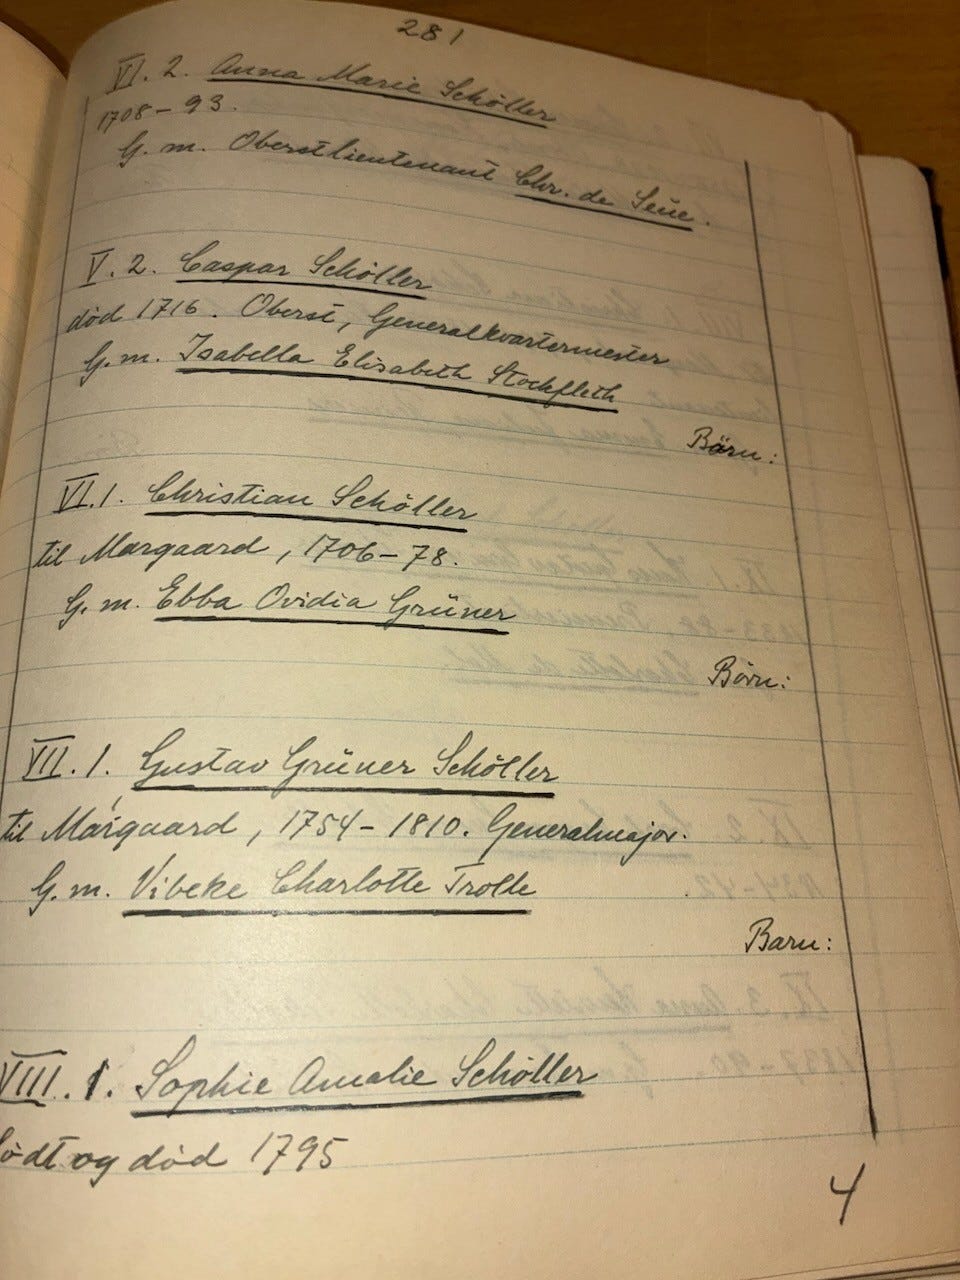 281
VI. 2. Anna Marie Schöller
1708-93.
G. m. Oberstlieutenant Chr. de Seüe.
V. 2. Caspar Schöller
död 1716. Oberst, Generalkvartermester
G. m. Isabella Elisabeth Stockfleth
Börn:
VI. 1. Christian Schöller
til Margaard, 1706-78.
G. m. Ebba Ovidia Grüner
Börn:
VII. 1. Gustav Grüner Schöller
til Margaard, 1754-1810. Generalmajor.
G. m. Vibeke Charlotte Trolle
Barn:
VIII. 1. Sophie Amalie Schöller
födt og död 1795
4